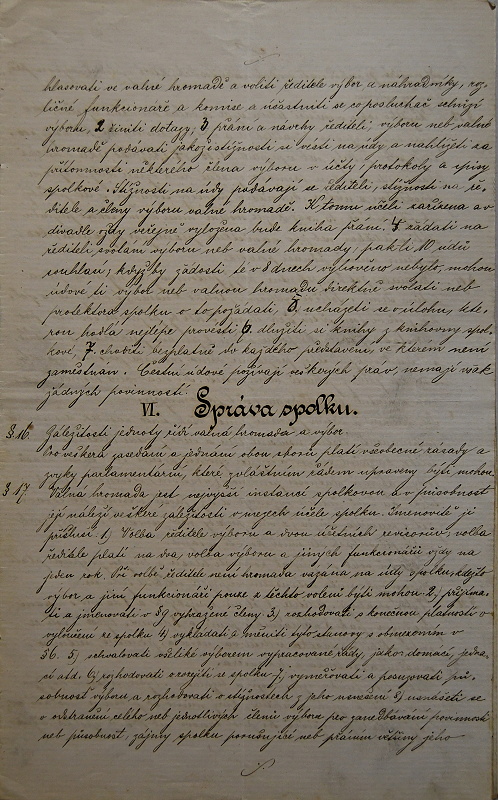 hlasovati ve valné hromadě a voliti ředitele výbor a náhradníky, roz-
ličné funkcionáře a komise a účastniti se co posluchač schůzí
výboru, 2 činiti dotazy, 3 přání a návrhy řediteli výboru neb valné
hromadě podávati jakož i stížnosti u vésti na údy a nahlížeti za
přítomnosti některého člena výboru v účty, protokoly a spisy
spolkové. Stížnosti na údy podávají se řediteli, stížnosti na ře-
ditele a členy výboru valné hromadě. K tomu účeli zařízena a v
divadle vždy veřejně vyložena bude kniha přání. 4 žádati na
řediteli svolání výboru neb valné hromady, pak-li 10 údů
souhlasí; když by žádosti té v 8 dnech vyhověno nebylo, mohou
údové ti výbor neb valnou hromadu direktně svolati neb
protektora spolku o to požádati, 5. ucházeti se o úlohu, kte-
rou hodlá nejlépe provésti 6. dlužiti si knihy z knihovny spol-
kové, 7. choditi bezplatně do každého představení, ve kterém není
zaměstnán. Čestní údové požívají veškerých práv, nemají však
žádných povinností.
VI. Správa spolku.
§ 16. Záležitosti jednoty řídí valná hromada a výbor.
Pro veškerá zasedání a jednání obou sborů platí všeobecné zásady a
zvyky parlamentární, které zvláštním řádem upraveny býti mohou.
§ 17. Valná hromada jest nejvyšší instancí spolkovou a v působnost
její náleží veškeré záležitosti v mezích účele spolku. Jmenovitě jí
přísluší: 1) Volba ředitele výboru a dvou účetních revisorův; volba
ředitele platí na dva, volba výboru a jiných funkcionářů vždy na
jeden rok. Při volbě ředitele není hromada vázána na údy spolku, kdežto
výbor a jiní funkcionáři pouze z těchto voleni býti mohou. 2, přijíma-
ti a jmenovati v §9 vytknuté členy. 3) rozhodovati s konečnou platností o
vyloučení ze spolku 4) vykládati a měniti tyto stanovy s obmezením v
§6. 5) schvalovati všeliké výborem vypracované řády, jako: domácí, jedna-
cí atd. 6) rozhodovati o rozejití se spolku 7, vyměřovati a posuzovati pů-
sobnost výboru a rozhodovati o stížnostech z jeho usnešení 8) usnášeti se
o odstranění celého neb jednotlivých členův výboru pro zanedbávání povinnosti
neb působnost, zájmy spolku porušující neb přáním většiny jeho